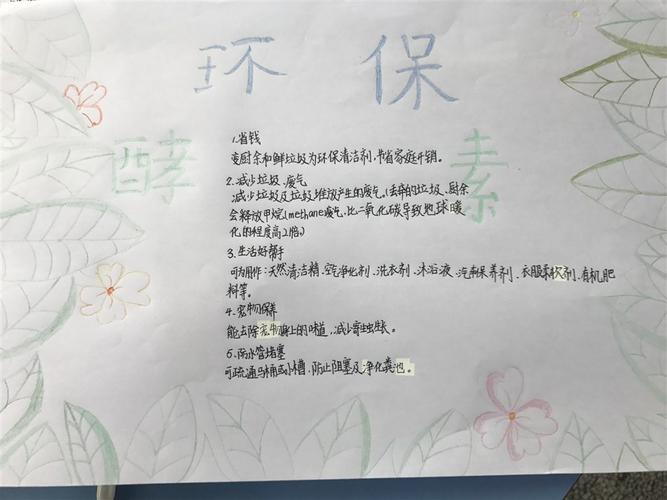 环 保
酵 素
1.省钱
变厨余和鲜垃圾为环保清洁剂,节省家庭开销。
2.减少垃圾、废气
减少垃圾及垃圾堆放产生的废气。(丢弃的垃圾、厨余
会释放甲烷(methane废气,比二氧化碳导致地球暖
化的程度高21倍)
3.生活好帮手
可用作:天然清洁精、空气净化剂、洗衣剂、沐浴液、汽车保养剂、衣服柔软剂、有机肥
料等。
4.宠物保养
能去除宠物身上的味道,减少寄生。
5.防水管堵塞
可疏通马桶或小槽,防止阻塞及净化粪池。